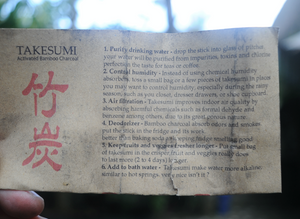 TAKESUMI
Activated Bamboo Charcoal
竹
炭
1. Purify drinking water - drop the stick into glass or pitcher
your water will be purified from impurities, toxins and chlorine
perfection the taste for teas or coffee.
2. Control humidity - Instead of using chemical humidity
absorbers, toss a small bag or a few pieces of takesumi in place
you may want to control humidity, especially during the rainy
season, such as you closet, dresser drawers, or shoe cabinet.
3. Air filtration - Takesumi improves indoor air quality by
absorbing harmful chemicals such as formaldehyde and
benzene among others, due to its porous nature.
4. Deodorizer - Bamboo charcoal absorbs odors and smokes
put the stick in the fridge and its works
better than baking soda
5. Keep fruits and veggies fresher longer - Put small bag
of takesumi in the crisper fruit and veggies really does
to last more (2 to 4 days) longer.
6. Add to bath water - Takesumi make water more alkaline
similar to hot springs, very nice isn't it?